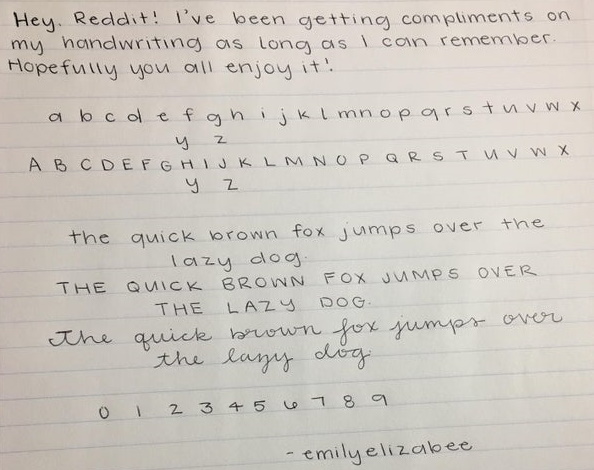 Hey, Reddit! I've been getting compliments on
my handwriting as long as I can remember.
Hopefully you all enjoy it!
a b c d e f g h i j k l m n o p q r s t u v w x
y z
A B C D E F G H I J K L M N O P Q R S T U V W X
Y Z
the quick brown fox jumps over the
lazy dog.
THE QUICK BROWN FOX JUMPS OVER
THE LAZY DOG.
The quick brown fox jumps over
the lazy dog
0 1 2 3 4 5 6 7 8 9
- emilyelizabee